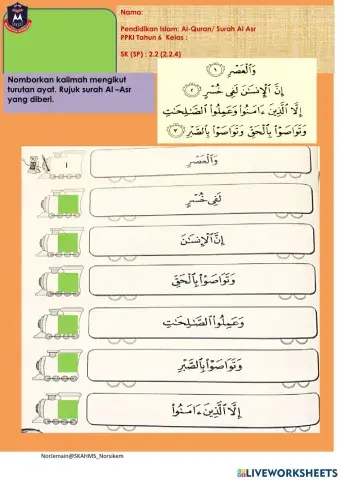 Nama:
Pendidikan Islam: Al-Quran/ Surah Al Asr
PPKI Tahun 6 Kelas :
SK (SP) : 2.2 (2.2.4)
Nomborkan kalimah mengikut
turutan ayat. Rujuk surah Al –Asr
yang diberi.
وَٱلْعَصْرِ ١
إِنَّ ٱلْإِنسَـٰنَ لَفِى خُسْرٍ ٢
إِلَّا ٱلَّذِينَ ءَامَنُوا۟ وَعَمِلُوا۟ ٱلصَّـٰلِحَـٰتِ
وَتَوَاصَوْا۟ بِٱلْحَقِّ وَتَوَاصَوْا۟ بِٱلصَّبْرِ ٣
١ وَٱلْعَصْرِ
لَفِى خُسْرٍ
إِنَّ ٱلْإِنسَـٰنَ
وَتَوَاصَوْا۟ بِٱلْحَقِّ
وَعَمِلُوا۟ ٱلصَّـٰلِحَـٰتِ
وَتَوَاصَوْا۟ بِٱلصَّبْرِ
إِلَّا ٱلَّذِينَ ءَامَنُوا۟
Norjemain@SKAHMS_Norsikem
LIVEWORKSHEETS